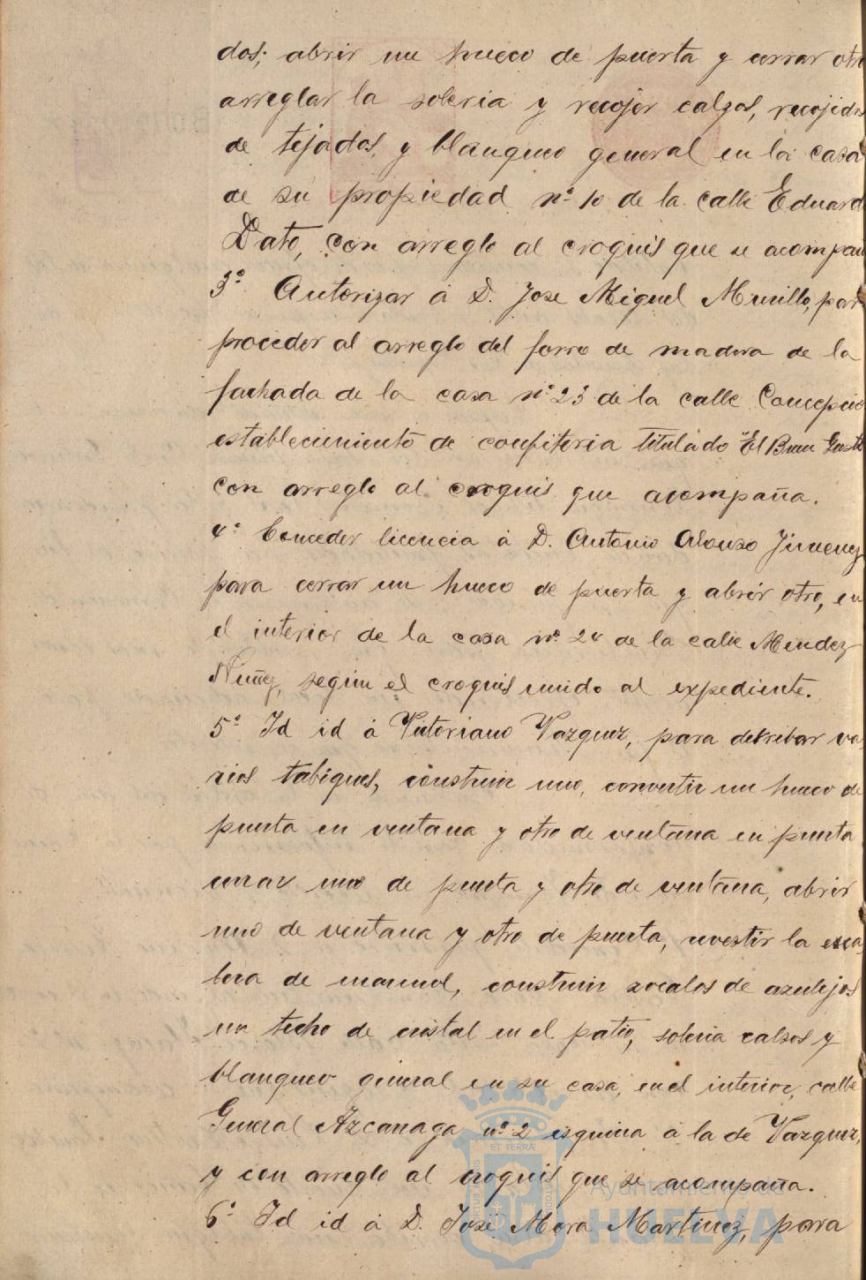 dos; abrir un hueco de puerta y cerrar otro
arreglar la soleria y recojer calzos, recojidos
de tejados, y blanqueo general en la casa
de su propiedad nº 10 de la calle Eduard
Dato, con arreglo al croquis que se acompañ
3º Autorizar á D. Jose Miguel Murillo, par
proceder al arreglo del forro de madera de la
fachada de la casa nº 23 de la calle Concepcio
establecimiento de confiteria titulado "El Buen Gusto
con arreglo al croquis que acompaña.
4º Conceder licencia á D. Antonio Alonso Jimenez
para cerrar un hueco de puerta y abrir otro, en
el interior de la casa nº 24 de la calle Mendez
Nuñez, según el croquis unido al expediente.
5º Id id á Vitoriano Vazquez, para derribar va-
rios tabiques, construir uno, convertir un hueco de
puerta en ventana y otro de ventana en puerta
cerrar uno de puerta y otro de ventana, abrir
uno de ventana y otro de puerta, revestir la esca-
lera de marmol, construir zocalos de azulejos
un techo de cristal en el patio, soleria calzos y
blanqueo general en su casa, en el interior, calle
General Azcarraga nº 2 esquina á la de Vazquez,
y con arreglo al croquis que se acompaña.
6º Id id á D. José Mora Martinez, para
ET TERRA
Ayuntamiento de
HUELVA